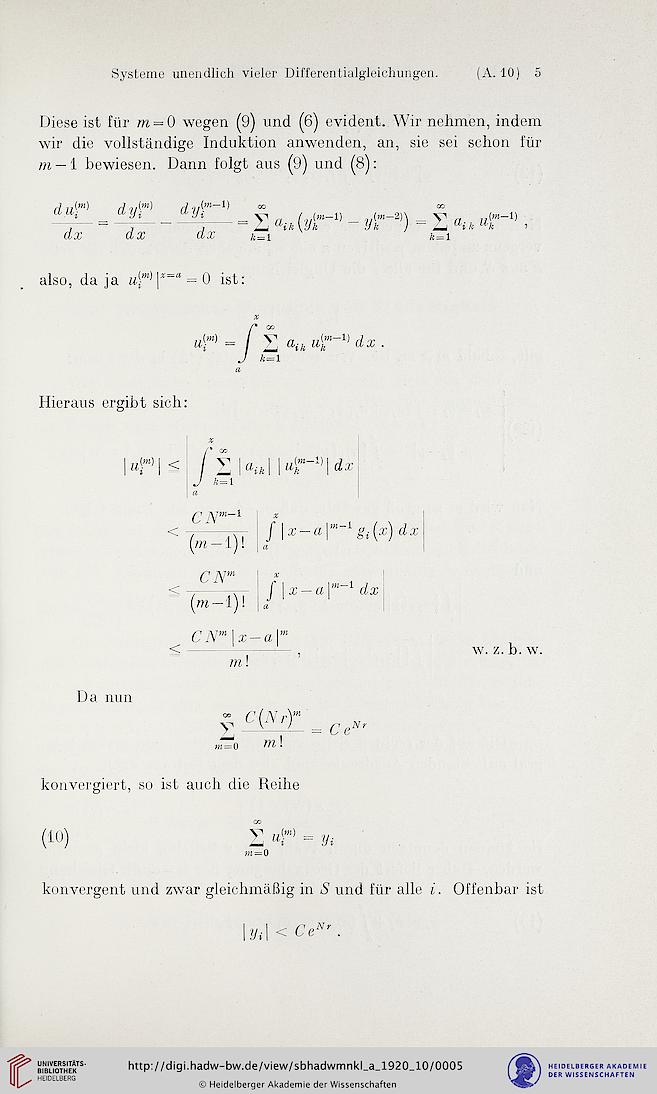 Systeme unendlich vieler Differentialgleichungen. (A. 10) 5
Diese ist für m = 0 wegen (9) und (6) evident. Wir nehmen, indem
wir die vollständige Induktion anwenden, an, sie sei schon für
m — 1 bewiesen. Dann folgt aus (9) und (8):
d u_i^(m) / d x = d y_i^(m) / d x — d y_i^(m—1) / d x = ∑_{k=1}^∞ a_ik (y_k^(m—1) — y_k^(m—2)) = ∑_{k=1}^∞ a_ik u_k^(m—1) ,
also, da ja u_i^(m) |^{x=a} = 0 ist:
u_i^(m) = ∫_a^x ∑_{k=1}^∞ a_ik u_k^(m—1) d x .
Hieraus ergibt sich:
| u_i^(m) | ≤ | ∫_a^x ∑_{k=1}^∞ | a_ik | | u_k^(m—1) | d x |
≤ C N^{m—1} / (m — 1)! | ∫_a^x | x — a |^{m—1} g_i (x) d x |
≤ C N^m / (m — 1)! | ∫_a^x | x — a |^{m—1} d x |
≤ C N^m | x — a |^m / m ! , w. z. b. w.
Da nun
∑_{m=0}^∞ C (N r)^m / m ! = C e^{N r}
konvergiert, so ist auch die Reihe
(10) ∑_{m=0}^∞ u_i^(m) = y_i
konvergent und zwar gleichmäßig in S und für alle i. Offenbar ist
| y_i | < C e^{N r} .
UNIVERSITÄTS-
BIBLIOTHEK
HEIDELBERG
http://digi.hadw-bw.de/view/sbhadwmnkl_a_1920_10/0005
© Heidelberger Akademie der Wissenschaften
HEIDELBERGER AKADEMIE
DER WISSENSCHAFTEN